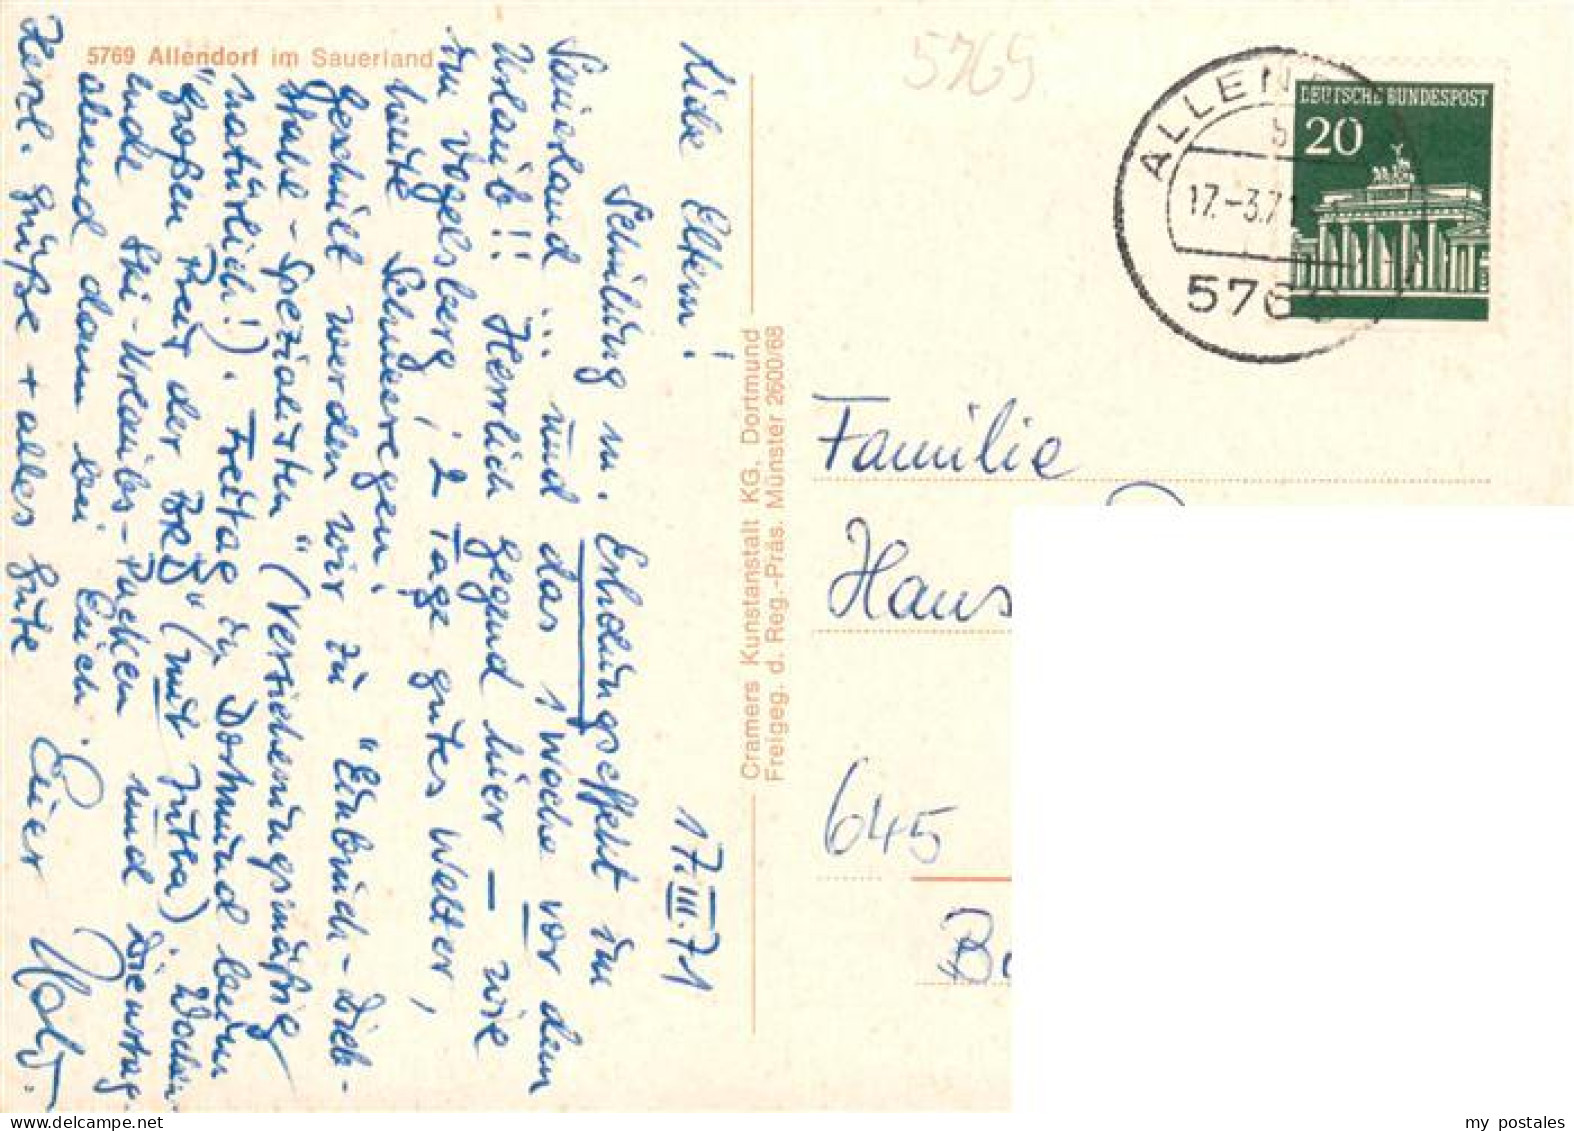 5769 Allendorf im Sauerland
17.III.71
Liebe Eltern!
Schulung m. Erholungseffekt im
Sauerland ... und das 1 Woche vor dem
Urlaub!! Herrlich gegend hier – wie
im Vogelsberg, 2 Tage gutes Wetter,
heute Schneeregen!
Geschult werden wir zu "Einbruch-Dieb-
stahl-Spezialisten" (versicherungsmäßig
natürlich!). Freitag in Dortmund beim
"großen Preis der BRD" (mit Jutta) Wochen-
ende Ski-Urlaubs-Packen und Dienstag-
abend dann bei Euch.
Herzl. Grüße + alles Gute
Euer
Cramers Kunstanstalt KG, Dortmund
Freigeg. d. Reg.-Präs. Münster 2600/68
5769
ALLEN
17.-3.71
576
DEUTSCHE BUNDESPOST
20
Familie
Hans
645
my postales